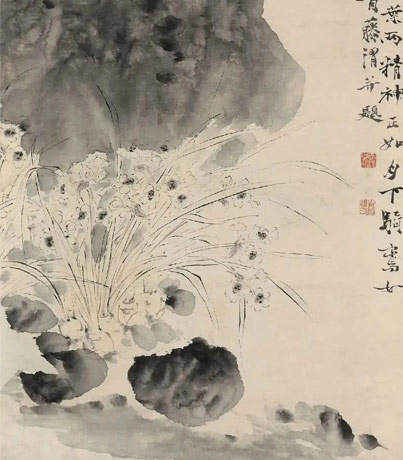 葉兩精神正如月下騎鸞女
青藤渭并題